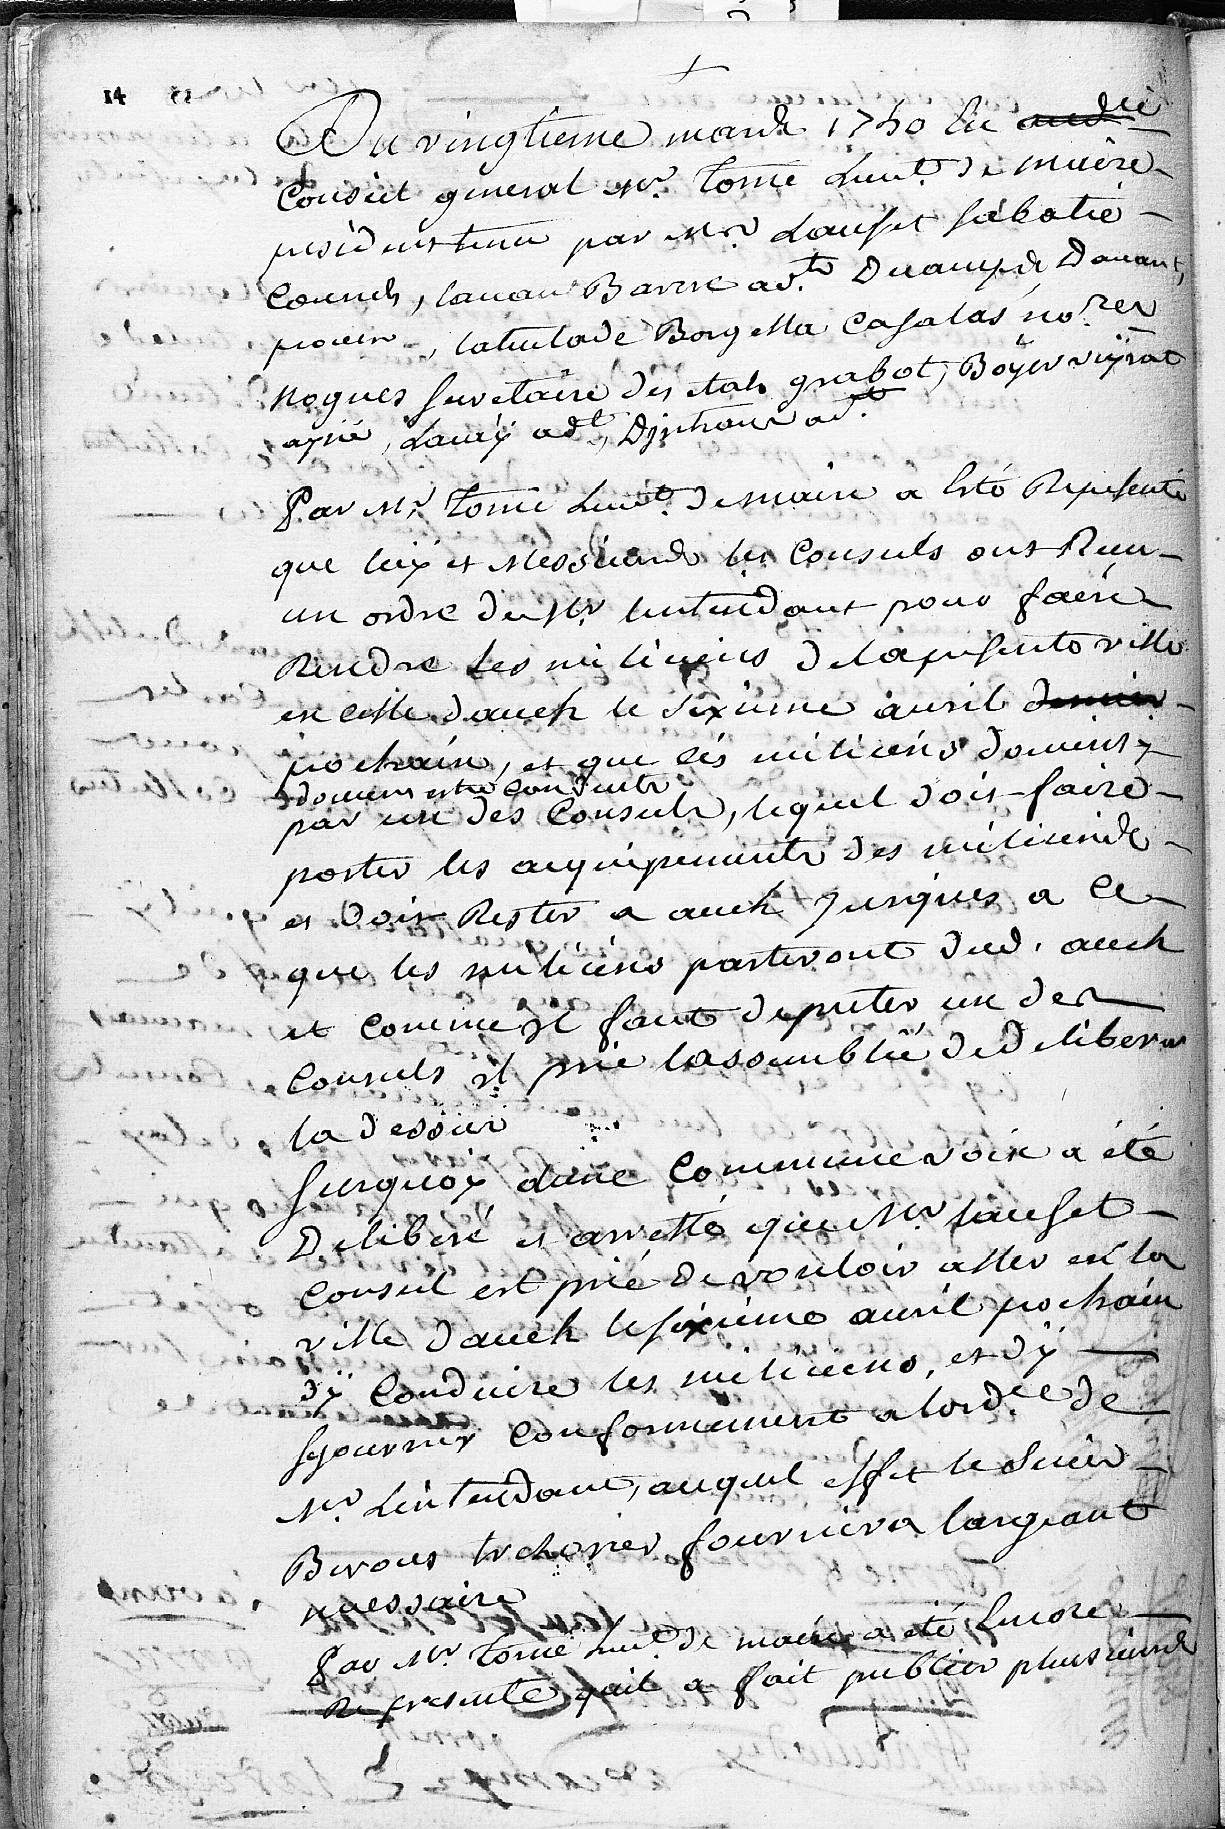 14
Du vingtieme mards 1740 En audi
Conseil general Mr. Tomé Lieut. de maire
president tenu par Mrs. Laufet sabatié
Consuls, Lauan Barere adts. Ducamp de Dauant,
procur, Latulade Borgella Casalas nores
Nogues secretaire des etats grabot, Boyer
Par Mr. Tomé Lieut. de maire a Esté Representé
que luy et Messieurds les Consuls ont Reeu
un ordre de Mr. Lintendant pour faére
Rendre les miliciens de la presente ville
en celle dauch le sixieme avril dernier
prochain, et que ces miliciens doivent
doivent estre conduits
par un des Consuls, lequel doit faire
porter les acquipements des miliciends
et doit Rester a auch Jusques a Ce
que les miliciens partiront dud. auch
et comme Il faut deputer un des
Consuls Il prie lassemblée de deliberer
la dessus
surquoy dune commune voix a été
Deliberé et arretté que Mr. Laufet
Consul est prié de vouloir aller en la
ville dauch le sixieme avril prochain
dy Conduire les miliciens, et dy
sejourner Conformement a lordce de
Mr. Lintendant, auquel effet le Sieur
Berous trezorier fournira largeant
necessaire
Par Mr. Tomé Lieut. de maire a été Encore
Representé quil a fait publier plusieurds